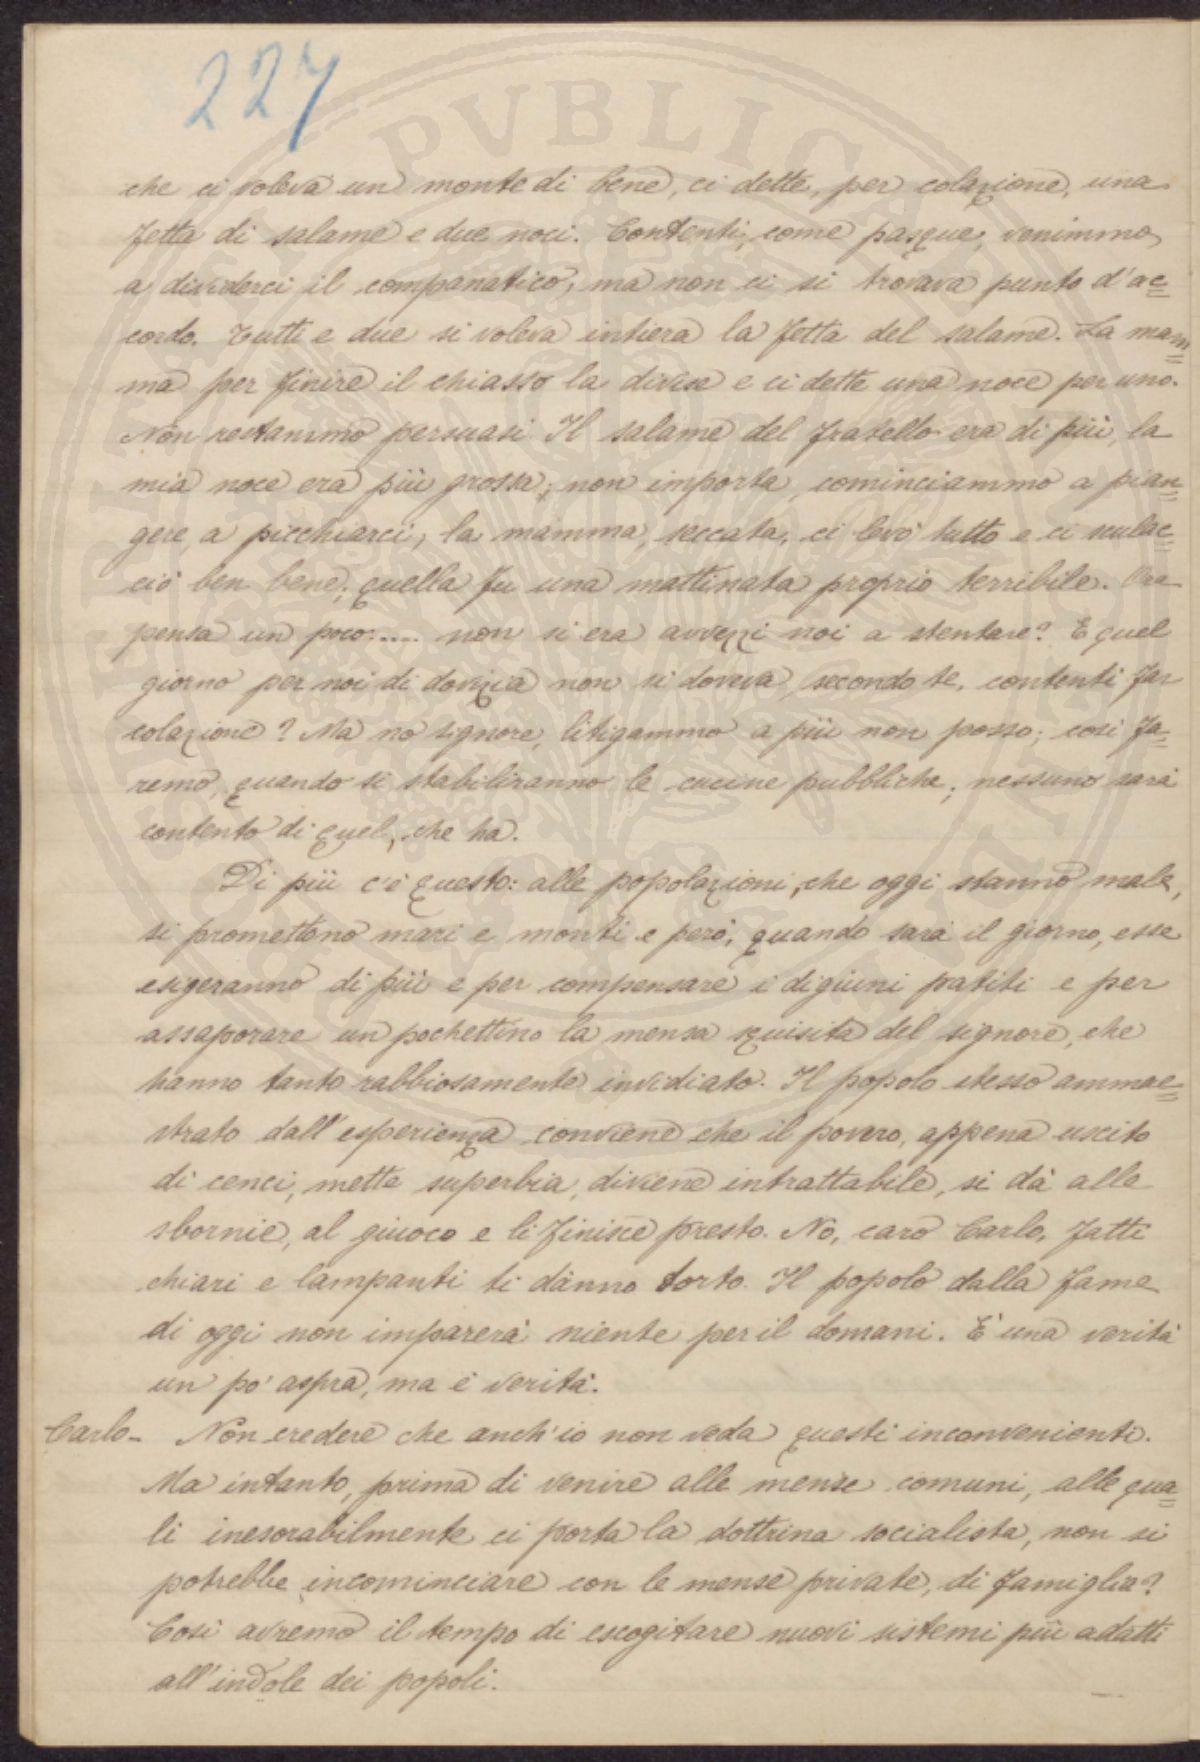 227
che ci voleva un monte di bene, ci dette, per colazione, una
fetta di salame e due noci. Contenti, come pasque, venimmo
a dividerci il companatico, ma non ci si trovava punto d'ac=
cordo. Tutti e due si voleva intiera la fetta del salame. La mam=
ma per finire il chiasso la divise e ci dette una noce per uno.
Non restammo persuasi Il salame del fratello era di più, la
mia noce era più grossa; non importa, cominciammo a pian=
gere, a picchiarci, la mamma, seccata, ci levò tutto e ci sculac=
ciò ben bene; quella fu una mattinata proprio terribile. Ora
pensa un poco:.... non si era avvezzi noi a stentare? E quel
giorno per noi di dovizia non si doveva, secondo te, contenti far
colazione? Ma no signore, litigammo a più non posso; così fa=
remo, quando si stabiliranno le cucine pubbliche; nessuno sarà
contento di quel, che ha.
Di più c'è questo: alle popolazioni, che oggi stanno male,
si promettono mari e monti e però, quando sarà il giorno, esse
esigeranno di più e per compensare i digiuni patiti e per
assaporare un pochettino la mensa squisita del signore, che
hanno tanto rabbiosamente invidiato. Il popolo stesso ammae=
strato dall'esperienza conviene che il povero, appena uscito
di cenci, mette superbia, diviene intrattabile, si dà alle
sbornie, al giuoco e li finisce presto. No, caro Carlo, fatti
chiari e lampanti ti dànno torto. Il popolo dalla fame
di oggi non imparerà niente per il domani. È una verità
un po' aspra, ma è verità.
Carlo- Non credere che anch'io non veda questi inconvenienti.
Ma intanto, prima di venire alle mense comuni, alle qua=
li inesorabilmente ci porta la dottrina socialista, non si
potrebbe incominciare con le mense private, di famiglia?
Così avremo il tempo di escogitare nuovi sistemi più adatti
all'indole dei popoli.